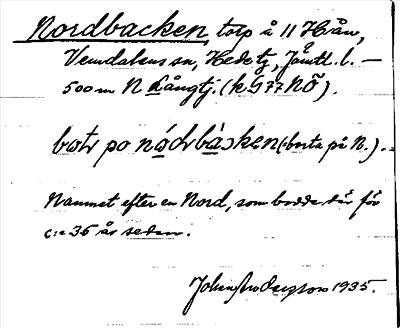 Nordbacken, torp å 11 Hån,
Vemdalens sn, Hede tg, Jämtl. l. —
500 m N Långtj. (k G 77 NÖ).
botr po nådrbàkən (borta på N.).
Namnet efter en Nord, som bodde där för
c:a 35 år sedan.
Johan 1935.